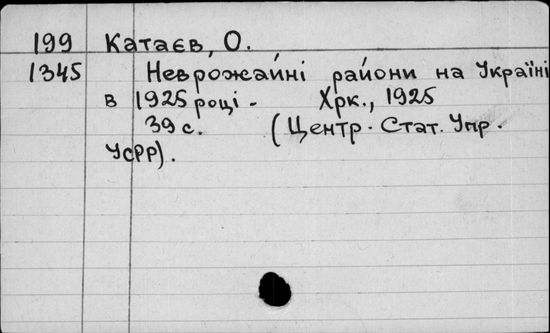 199 Катаєв, О.
1345 Неврожайні райони на Україні
в 1925 році - Хрк., 1925
39 с. (Центр. Стат. Упр.
УСРР).